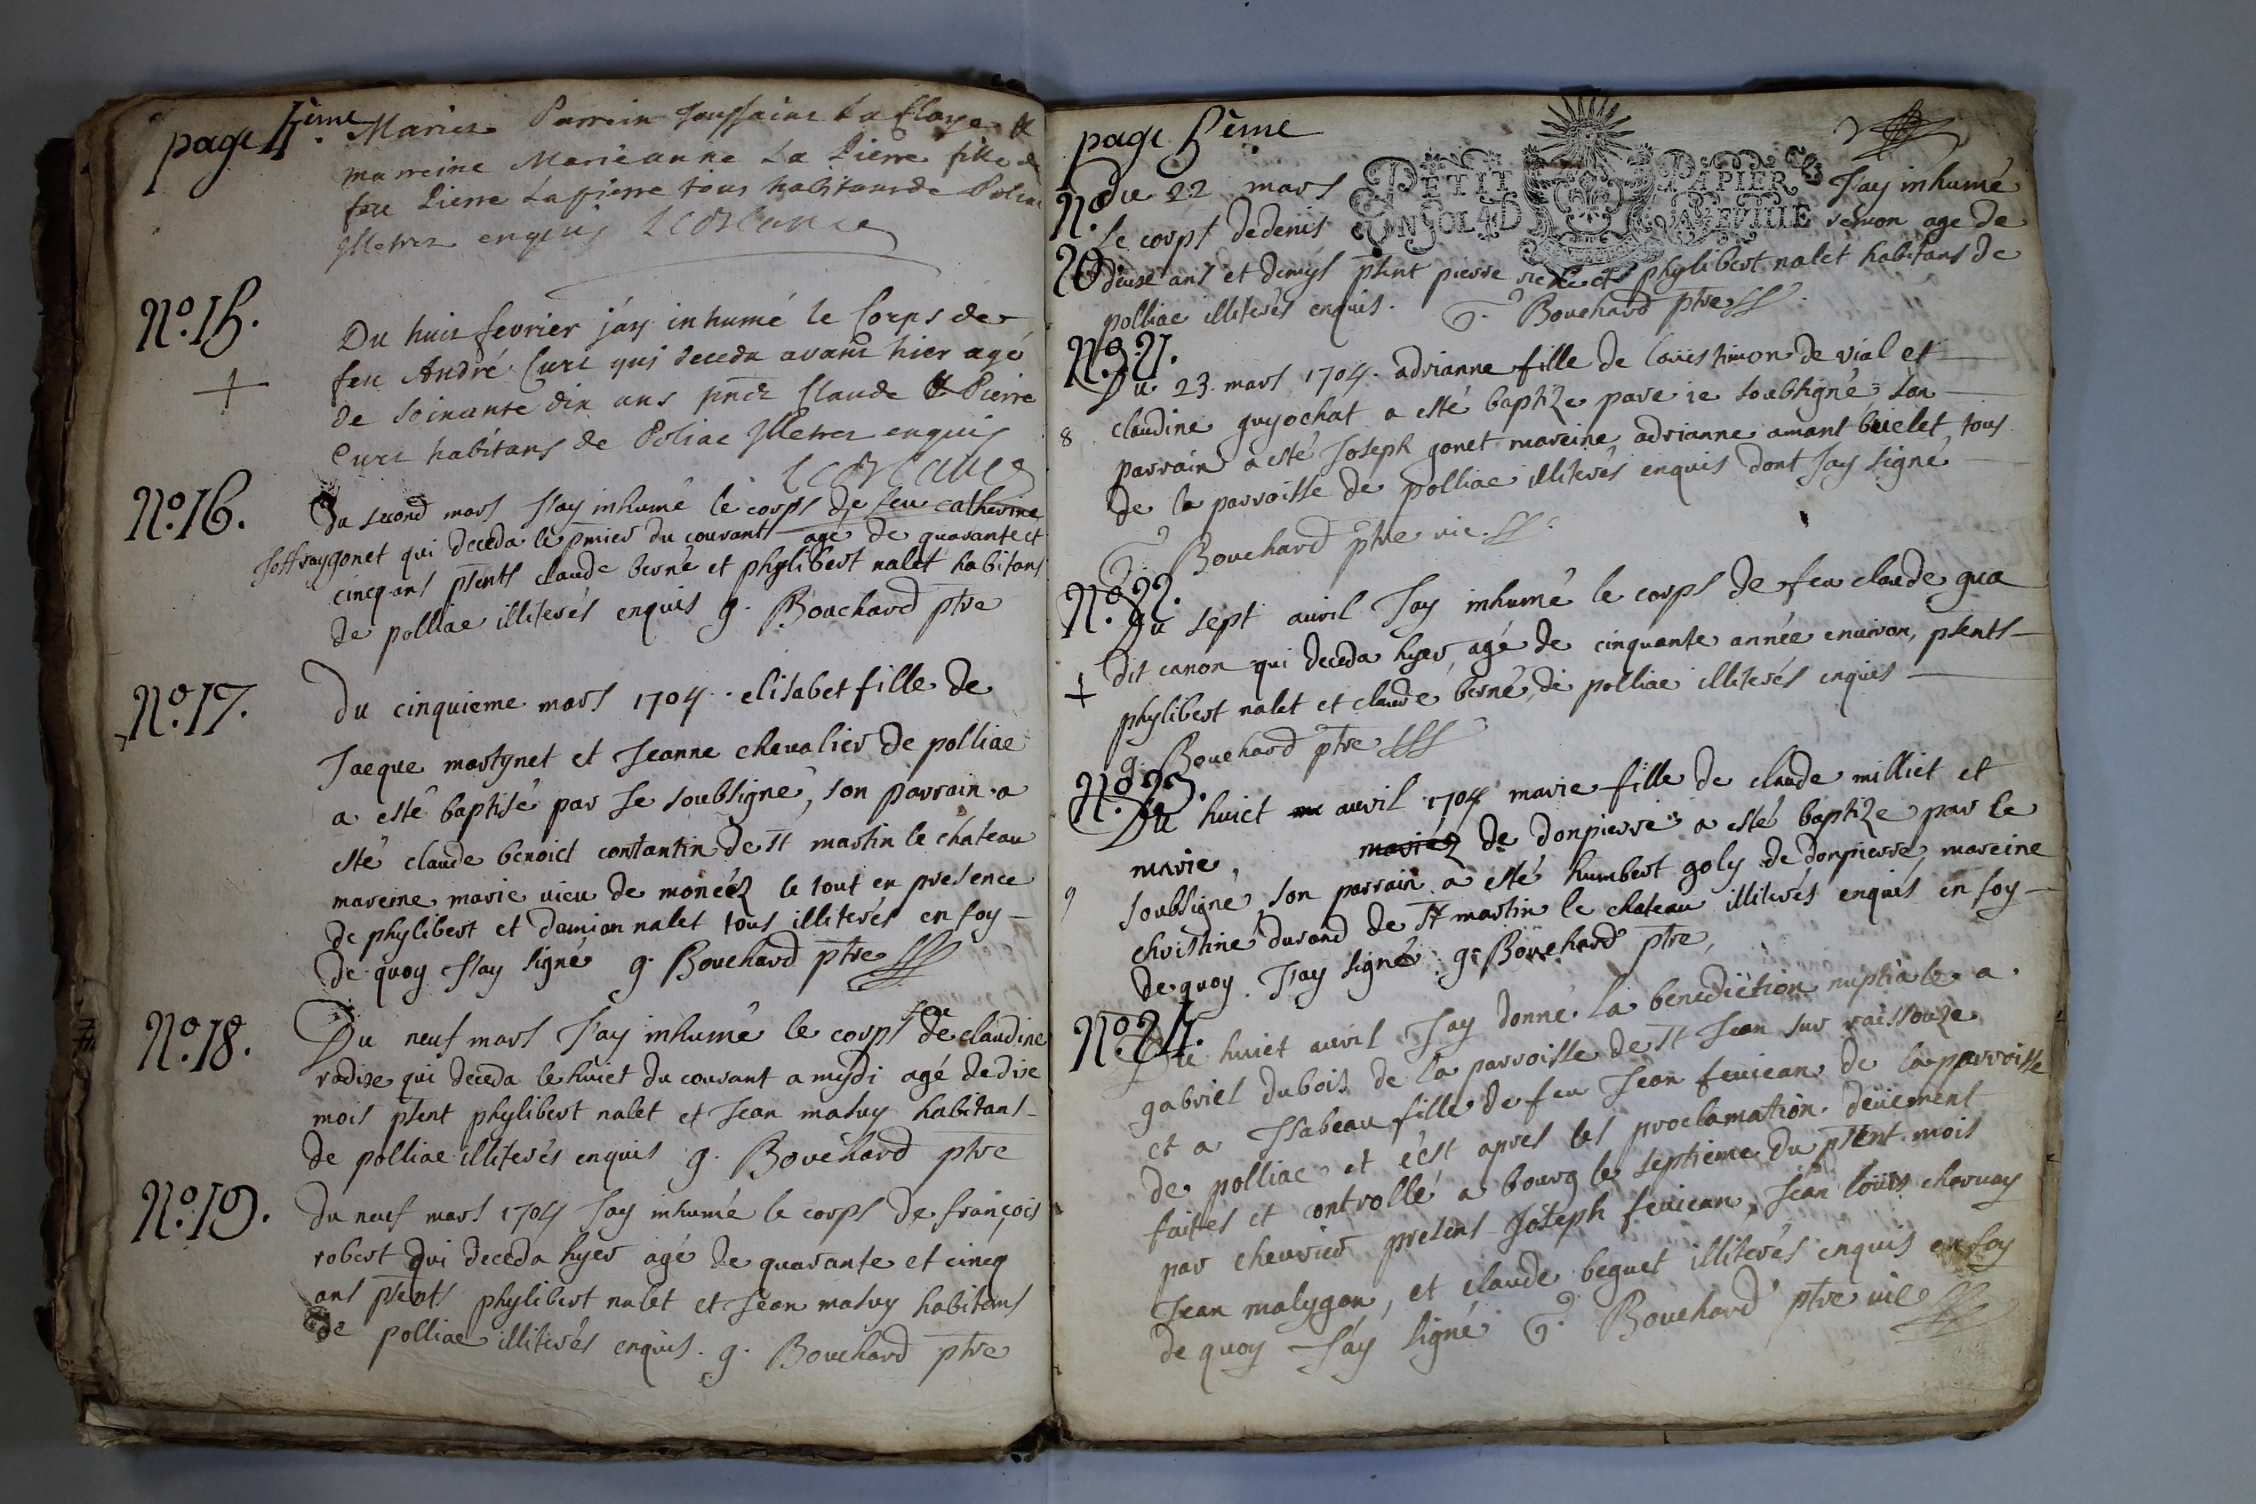 page 4ème.
Maries Parrein Toussains La Claye &
marreine Marieanne La Pierre fille de
feu Pierre Lapierre tous habitans de Poliac
Illetrez enquis
N.º 15.
Du huit fevrier j'ay inhumé le Corps de
feu André Curt qui deceda avant hier agé
de soixante dix ans pntz Claude & Pierre
Curt habitans de Poliac Illetrez enquis
N.º 16.
Du second mars J'ay inhumé le corps de feu catherine
Joffray gonet qui deceda le pmier du courant agé de quarante et
cinq ans psents claude berné et phylibert nalet habitans
de polliac illiterés enquis g. Bouchard ptre
N.º 17.
Du cinquieme mars 1704. elisabet fille de
Jacque martynet et Jeanne chevalier de polliac
a esté baptisé par Je soubsigné, son parrain a
esté claude benoict constantin de St martin le château
mareine marie vieu de monéez le tout en presence
de phylibert et damian nalet tous illiterés en foy
de quoy J'ay signé g. Bouchard ptre
N.º 18.
Du neuf mars J'ay inhumé le corps de feu claudine
rodize qui deceda le huict du courant a mydi agé de dixe
mois psent phylibert nalet et Jean matuy habitans
de polliac illiterés enquis g. Bouchard ptre
N.º 19.
Du neuf mars 1704 J'ay inhumé le corps de françois
robert qui deceda hyer agé de quarante et cincq
ans psents phylibert nalet et Jean matuy habitans
de polliac illiterés enquis. g. Bouchard ptre
page 5ème
PETIT PAPIER
UN SOL 4 D LA FEUILLE
N.º 20
Du 22 mars J'ay inhumé
Le corps de denis venon age de
deuxe ans et demys psent pierre et phylibert nalet habitans de
polliac illiterés enquis. G. Bouchard ptre
N.º 21.
Du 23. mars 1704. adrianne fille de loüis timon de vial et
8 claudine guyochat a esté baptize pare ie soubsigné son
parrain a esté Joseph gonet mareine adrianne amant buclet tous
de la parroisse de polliac illiterés enquis dont J'ay signé
G. Bouchard ptre vic.
N.º 22.
Du sept avril J'ay inhumé le corps de feu claude gua
dit canon qui deceda hyer, agé de cinquante année environ, psents
phylibert nalet et claude berné, de polliac illiterés enquis
g. Bouchard ptre
N.º 23.
Du huict avril 1704 marie fille de claude milliet et
marie, mariéz de donpierre a esté baptize par le
9 soubsigné, son parrain a esté humbert goly de donpierre, mareine
christine durand de St martin le chateau illiterés enquis en foy
de quoy. J'ay signé. g. Bouchard ptre,
N.º 24.
Du huict avril J'ay donné La benediction nuptiale a
gabriel dubois de la parroisse de St Jean sur raissouze
et a Jsabeau fille de feu Jean feuiean de la parroisse
de polliac et c'est apres les proclamation deüement
faites et controllé a bourg le septieme du psent mois
par chevrier presens Joseph feuiean, Jean loüis charnay
Jean malygon, et claude beguet illiterés enquis en foy
de quoy J'ay signé G. Bouchard ptre vic